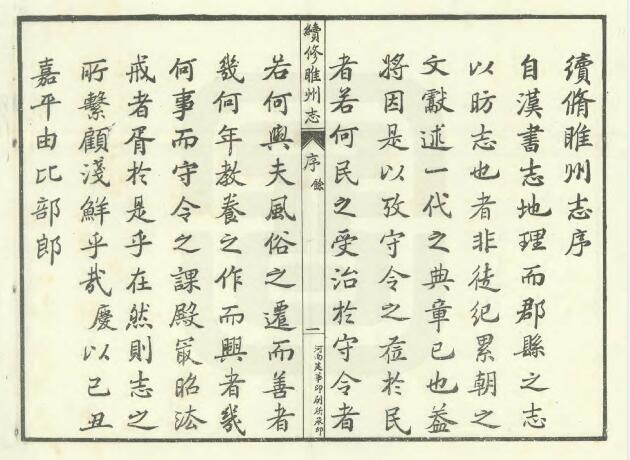 續脩睢州志序
自漢書志地理而郡縣之志
以昉志也者非徒紀累朝之
文獻述一代之典章已也蓋
將因是以攷守令之蒞於民
者若何民之受治於守令者
續修睢州志
序
餘
一
河南建華印刷所承印
若何與夫風俗之遷而善者
幾何年教養之作而興者幾
何事而守令之課殿冣昭法
戒者胥於是乎在然則志之
所繫顧淺鮮乎哉慶以己丑
嘉平由比部郎